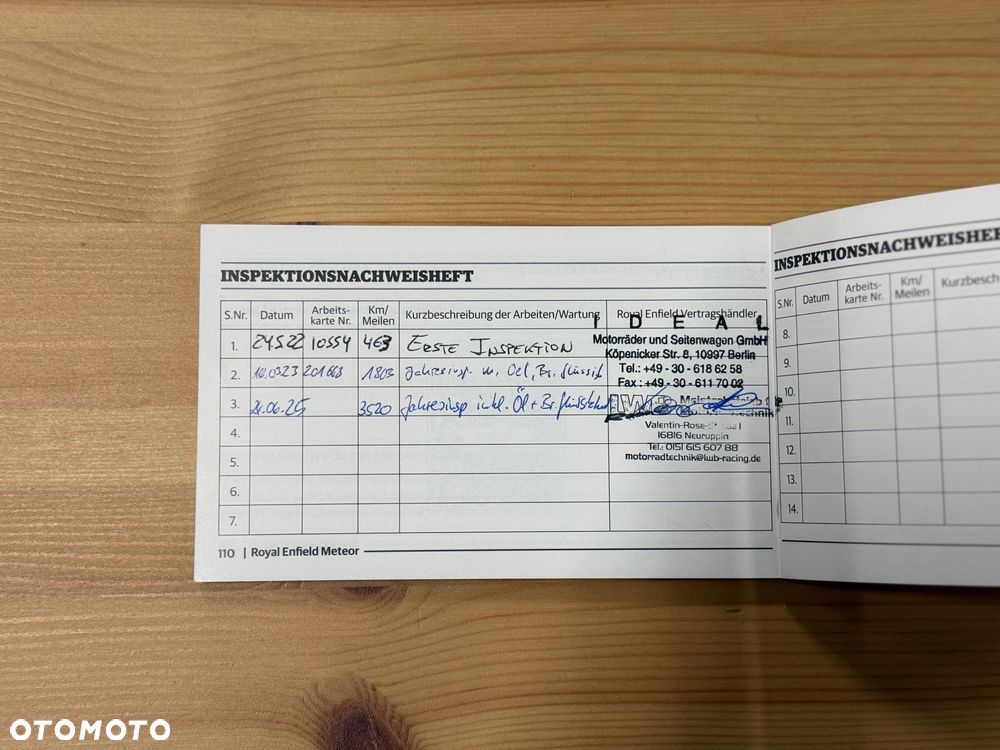 INSPEKTIONSNACHWEISHEFT
S.Nr. Datum Arbeits-karte Nr. Km/Meilen Kurzbeschreibung der Arbeiten/Wartung Royal Enfield Vertragshändler
1. 24522 10554 463 ERSTE INSPEKTION
2. 1803 Jahresinsp. Öl, Br. flüssig
3. 24.06.25 3520 Jahresinsp inkl. Öl + Br.
4.
5.
6.
7.
IDEAL
Motorräder und Seitenwagen GmbH
Köpenicker Str. 8, 10997 Berlin
Tel.: +49 - 30 - 618 62 58
Fax : +49 - 30 - 611 70 02
16816 Neuruppin
Tel.: 0151 615 607 88
motorradtechnik@lwb-racing.de
110 | Royal Enfield Meteor
INSPEKTIONSNACHWEISHEF
S.Nr. Datum Arbeits-karte Nr. Km/Meilen Kurzbesch
8.
9.
10.
11.
12.
13.
14.
OTOMOTO